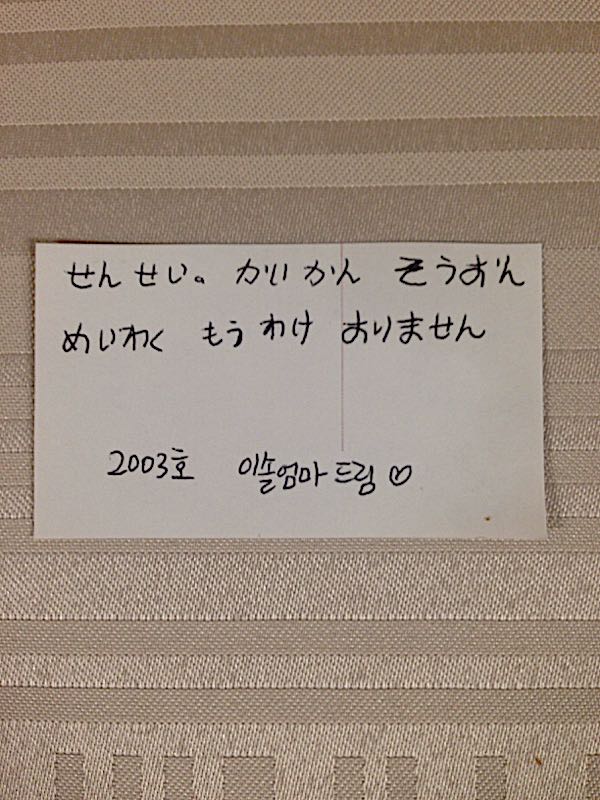 せんせい。 かいかん そうおん
めいわく もう わけ おりません
2003호 이솔엄마 드림♡